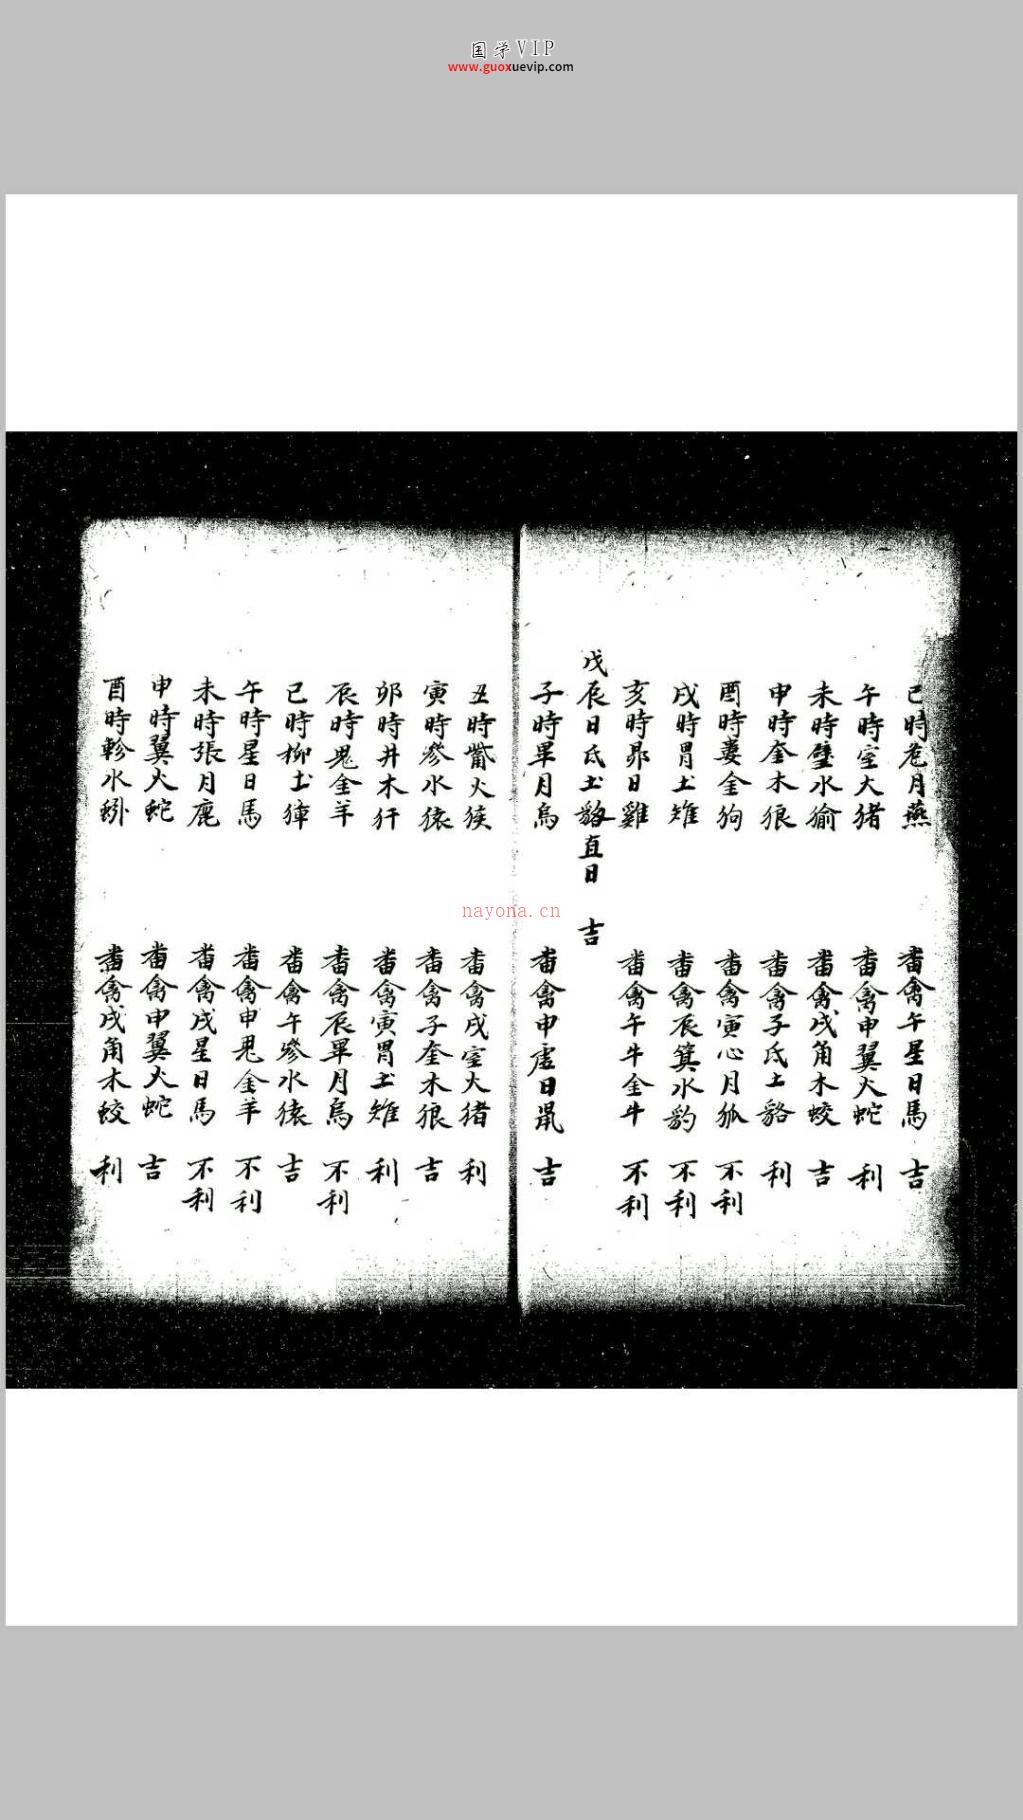 国学VIP
www.guoxuevip.com
巳時危月燕 畨禽午星日馬 吉
午時室火猪 畨禽申翼火蛇 利
未時璧水㺄 畨禽戌角木蛟 吉
申時奎木狼 畨禽子氐土貉 利
酉時婁金狗 畨禽寅心月狐 不利
戌時胃土雉 畨禽辰箕水豹 不利
亥時昴日雞 畨禽午牛金牛 不利
戊辰日氐土貉直日 吉
子時畢月烏 畨禽申虛日鼠 吉
丑時觜火猴 畨禽戌室火猪 利
寅時參水猿 畨禽子奎木狼 吉
卯時井木犴 畨禽寅胃土雉 利
辰時鬼金羊 畨禽辰畢月烏 不利
巳時柳土獐 畨禽午參水猿 吉
午時星日馬 畨禽申鬼金羊 不利
未時張月鹿 畨禽戌星日馬 不利
申時翼火蛇 畨禽申翼火蛇 吉
酉時軫水蚓 畨禽戌角木蛟 利
nayona.cn